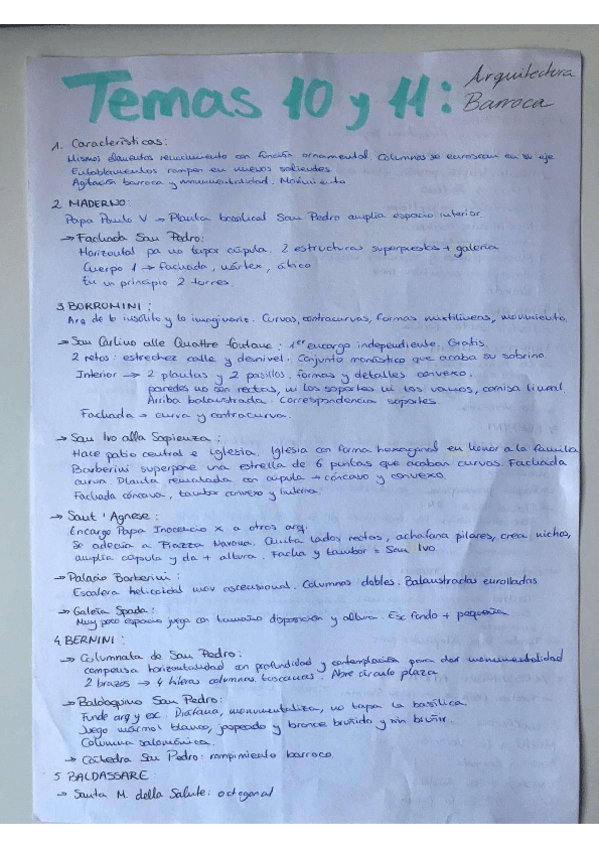 Temas 10 y 11: Arquitectura Barroca
1. Características:
Mismos elementos renacimiento con función ornamental. Columnas se enroscan en su eje.
Entablamentos rompen en nuevos salientes.
Agitación barroca y monumentalidad. Movimiento
2 MADERNO:
Papa Paulo V → Planta basilical San Pedro amplía espacio interior
→ Fachada San Pedro:
Horizontal pa no tapar cúpula. 2 estructuras superpuestas + galería
Cuerpo 1 → Fachada, nártex, ático
En un principio 2 torres.
3 BORROMINI:
Arq de lo insólito y lo imaginario. Curvas, contracurvas, formas mixtilíneas, movimiento.
→ San Carlino alle Quattre fontane: 1er encargo independiente. Gratis.
2 retos: estrechez calle y desnivel. Conjunto monástico que acaba su sobrino.
Interior → 2 plantas y 2 pasillos. formas y detalles convexo.
paredes no son rectas, ni los soportes ni los vanos, cornisa lineal.
Arriba balaustrada. Correspondencia soportes.
Fachada → curva y contracurva.
→ San Ivo alla Sapienza:
Hace patio central e iglesia. Iglesia con forma hexagonal en honor a la familia
Barberini superpone una estrella de 6 puntas que acaban curvas. Fachada
curva Planta rematada con cúpula → cóncavo y convexo.
Fachada cóncava, tambor convexo y linterna.
→ Sant'Agnese:
Encargo Papa Inocencio X a otros arq.
Se adecúa a Piazza Navona. Quita lados rectos, achaflana pilares, crea nichos,
amplía cúpula y da + altura. Facha y tambor = San Ivo.
→ Palacio Barberini:
Escalera helicoidal mov ascensional. Columnas dobles. Balaustradas enrolladas
→ Galería Spada:
Muy poco espacio juega con tamaño disposición y altura. Esc fondo + pequeña
4 BERNINI:
→ Columnata de San Pedro:
compensa horizontalidad con profundidad y contemplación para dar monumentalidad
2 brazos → 4 hileras columnas toscanas. Abre círculo plaza
→ Baldaquino San Pedro:
Funde arq y esc. Diáfana, monumentaliza, no tapa la basílica.
Juego mármol blanco, jaspeado y bronce bruñido y sin bruñir.
Columna salomónica.
→ Cátedra San Pedro: rompimiento barroco.
5 BALDASSARE:
→ Santa M. della Salute: octogonal